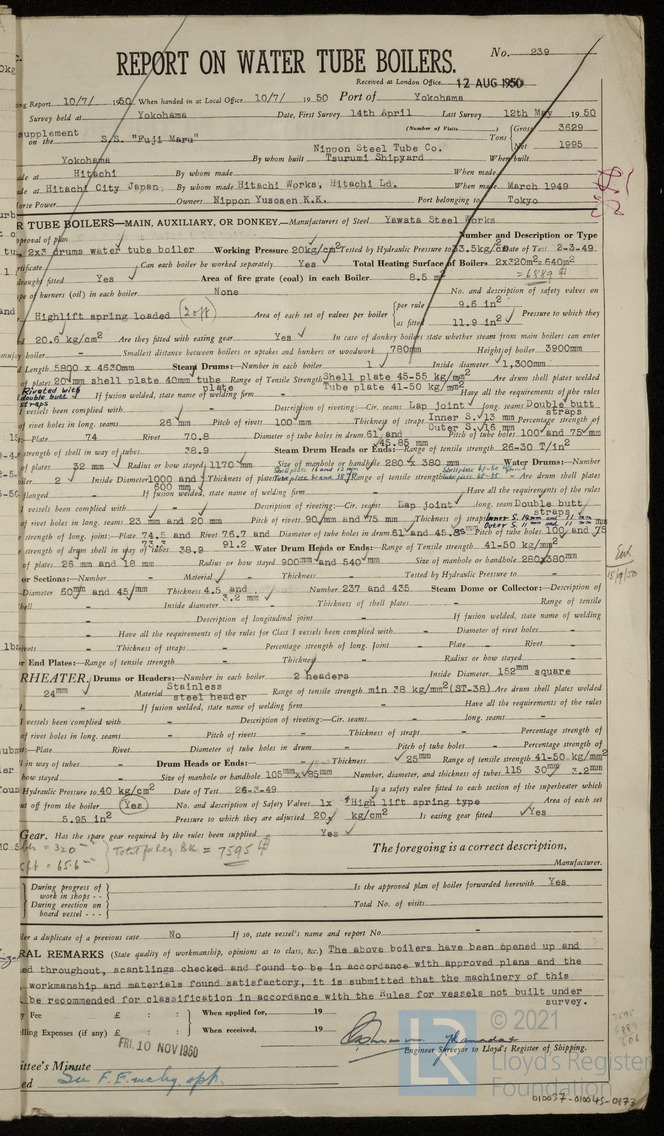 REPORT ON WATER TUBE BOILERS.
No. 239
Received at London Office 12 AUG 1950
Report 10/7/ 1950 When handed in at Local Office 10/7/ 19 50 Port of Yokohama
Survey held at Yokohama Date, First Survey 14th April Last Survey 12th May 19 50
supplement
on the S.S. "Fuji Maru" (Number of Visits ) Tons Gross 3629 Net 1995
Nippon Steel Tube Co.
Yokohama By whom built Tsurumi Shipyard When built
Hitachi By whom made When made
at Hitachi City Japan, By whom made Hitachi Works, Hitachi Ld. When made March 1949
Horse Power Owners Nippon Yusosen K.K. Port belonging to Tokyo
TUBE BOILERS—MAIN, AUXILIARY, OR DONKEY.—Manufacturers of Steel Yawata Steel Works
Number and Description or Type
2x3 drums water tube boiler Working Pressure 20kg/cm² Tested by Hydraulic Pressure to 33.5kg/cm² Date of Test 2-3-49
Can each boiler be worked separately Yes Total Heating Surface of Boilers 2x320m²=640m²
=6889
draught fitted Yes Area of fire grate (coal) in each Boiler 8.5 m²
of burners (oil) in each boiler None No. and description of safety valves on
Highlift spring loaded (2 off) Area of each set of valves per boiler per rule 9.6 in² as fitted 11.9 in² Pressure to which they
20.6 kg/cm² Are they fitted with easing gear Yes In case of donkey boilers state whether steam from main boilers can enter
boiler - Smallest distance between boilers or uptakes and bunkers or woodwork 780mm Height of boiler 3900mm
Length 5800 x 4630mm Steam Drums:—Number in each boiler 1 Inside diameter 1,300mm
of plates 20 mm shell plate 40mm tube plate Range of Tensile Strength Shell plate 45-55 kg/mm² Tube plate 41-50 kg/mm² Are drum shell plates welded
Riveted with double butt straps If fusion welded, state name of welding firm Have all the requirements of the rules
vessels been complied with Description of riveting:—Cir. seams Lap joint long. seams Double butt straps
of rivet holes in long. seams 26 mm Pitch of rivets 100 mm Thickness of straps Inner S. 13 mm Outer S. 16 mm Percentage strength of
Plate 74 Rivet 70.8 Diameter of tube holes in drum 61 and 45.85 mm Pitch of tube holes 100 and 75 mm
strength of shell in way of tubes 38.9 Steam Drum Heads or Ends:—Range of Tensile Strength 26-30 T/in²
of plates 32 mm Radius or how stayed 1170 mm Size of manhole or handhole 280 x 380 mm Water Drums:—Number
2 Inside Diameter 1000 and 600 mm Thickness of plates Range of tensile strength Are drum shell plates
flanged If fusion welded, state name of welding firm Have all the requirements of the rules
vessels been complied with - Description of riveting:—Cir. seams Lap joint long. seam Double butt straps
of rivet holes in long. seams 23 mm and 20 mm Pitch of rivets 90 mm and 75 mm Thickness of straps Inner S. 14 mm 11 mm Outer S. 11 mm and 11 mm
strength of long. joint:—Plate 74.5 and 73.3 Rivet 76.7 and 91.2 Diameter of tube holes in drum 61 and 45.85 Pitch of tube holes 100 and 75
strength of drum shell in way of tubes 38.9 Water Drum Heads or Ends:—Range of Tensile strength 41-50 kg/mm²
of plates 26 mm and 18 mm Radius or how stayed 900mm and 540mm Size of manhole or handhole 280x380mm
or Sections:—Number Material Thickness Tested by Hydraulic Pressure to
Diameter 60mm and 45 mm Thickness 4.5 and 3.2 mm Number 237 and 435 Steam Dome or Collector:—Description of
Inside diameter Thickness of shell plates Range of tensile
Description of longitudinal joint If fusion welded, state name of welding
Have all the requirements of the rules for Class I vessels been complied with Diameter of rivet holes
rivets Thickness of straps Percentage strength of long. Joint Plate Rivet
or End Plates:—Range of tensile strength Thickness Radius or how stayed
RHEATER. Drums or Headers:—Number in each boiler 2 headers Inside Diameter 152mm square
24mm Material Stainless steel header Range of tensile strength min 38 kg/mm²(ST-38) Are drum shell plates welded
If fusion welded, state name of welding firm Have all the requirements of the rules
vessels been complied with Description of riveting:—Cir. seams long. seams
of rivet holes in long. seams Pitch of rivets Thickness of straps Percentage strength of
Plate Rivet Diameter of tube holes in drum Pitch of tube holes Percentage strength of
in way of tubes Drum Heads or Ends:—Thickness 25mm Range of tensile strength 41-50 kg/mm²
how stayed Size of manhole or handhole 105mm x 85mm Number, diameter, and thickness of tubes 115 30mm 3.2mm
Hydraulic Pressure to 40 kg/cm² Date of Test 26-3-49 Is a safety valve fitted to each section of the superheater which
ut off from the boiler Yes No. and description of Safety Valves 1x High lift spring type Area of each set
5.95 in² Pressure to which they are adjusted 20 kg/cm² Is easing gear fitted Yes
Gear. Has the spare gear required by the rules been supplied Yes
= 320 Total for Reg. Bk = 7595
= 65.6
The foregoing is a correct description,
Manufacturer.
During progress of work in shops - - Is the approved plan of boiler forwarded herewith Yes
During erection on board vessel - - - Total No. of visits
a duplicate of a previous case No If so, state vessel's name and report No. -
RAL REMARKS (State quality of workmanship, opinions as to class, &c.) The above boilers have been opened up and
ed throughout, scantlings checked and found to be in accordance with approved plans and the
workmanship and materials found satisfactory, it is submitted that the machinery of this
be recommended for classification in accordance with the Rules for vessels not built under
survey.
Fee £ : : When applied for, 19
lling Expenses (if any) £ : : When received, 19
Engineer Surveyor to Lloyd's Register of Shipping.
FRI. 10 NOV 1950
ittee's Minute
See F.E. mchy rpt.
© 2021
LR
Lloyd's Register
Foundation
010037-010045-0173